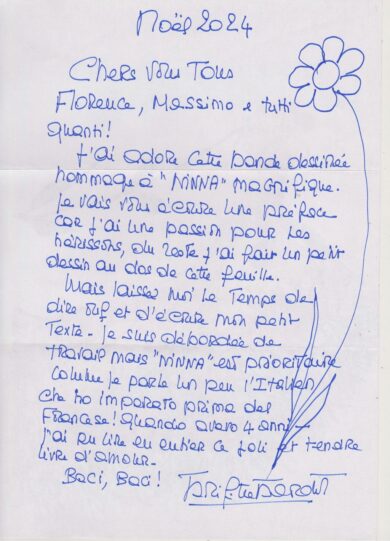 Noël 2024
Chers vous Tous
Florence, Massimo e tutti
quanti!
J'ai adoré cette bande dessinée
hommage à "NINNA" magnifique.
Je vais vous écrire une préface
car j'ai une passion pour les
hérissons, du reste j'ai fait un petit
dessin au dos de cette feuille.
Mais laissez moi le Temps de
dire ouf et d'écrire mon petit
Texte - Je suis débordée de
travail mais "NINNA" est prioritaire
comme je parle un peu l'Italien
che ho imparato prima del
Francese! quando avevo 4 anni -
j'ai pu lire en entier ce joli et tendre
livre d'amour.
Baci, Baci! Brigitte Bardot